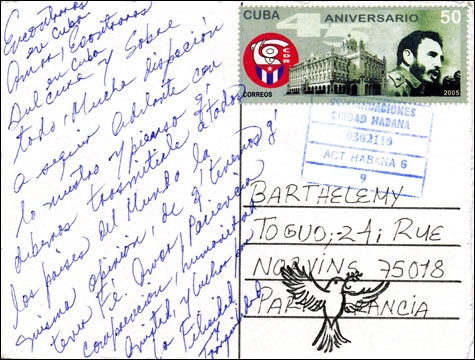 Encontramos
en Cuba
Amor, Encontramos
en Cuba
Dulzura y Sobre
todo, Mucha disposición
a seguir adelante con
lo nuestro y pienso q'
debemos trasmitirle a todos
los países del Mundo la
misma opinión, de q' tenemos q'
tener Fé, Amor, Paciencia
comprensión, humanidad
Amistad, y Luchar por
la Felicidad
Tranquilidad
CUBA ANIVERSARIO 50
45
CDR
CORREOS
2005
COMUNICACIONES
CIUDAD HABANA
0302119
ACT HABANA 6
9
BARTHELEMY
TOGUO; 24; RUE
NORVINS 75018
PARIS FRANCIA